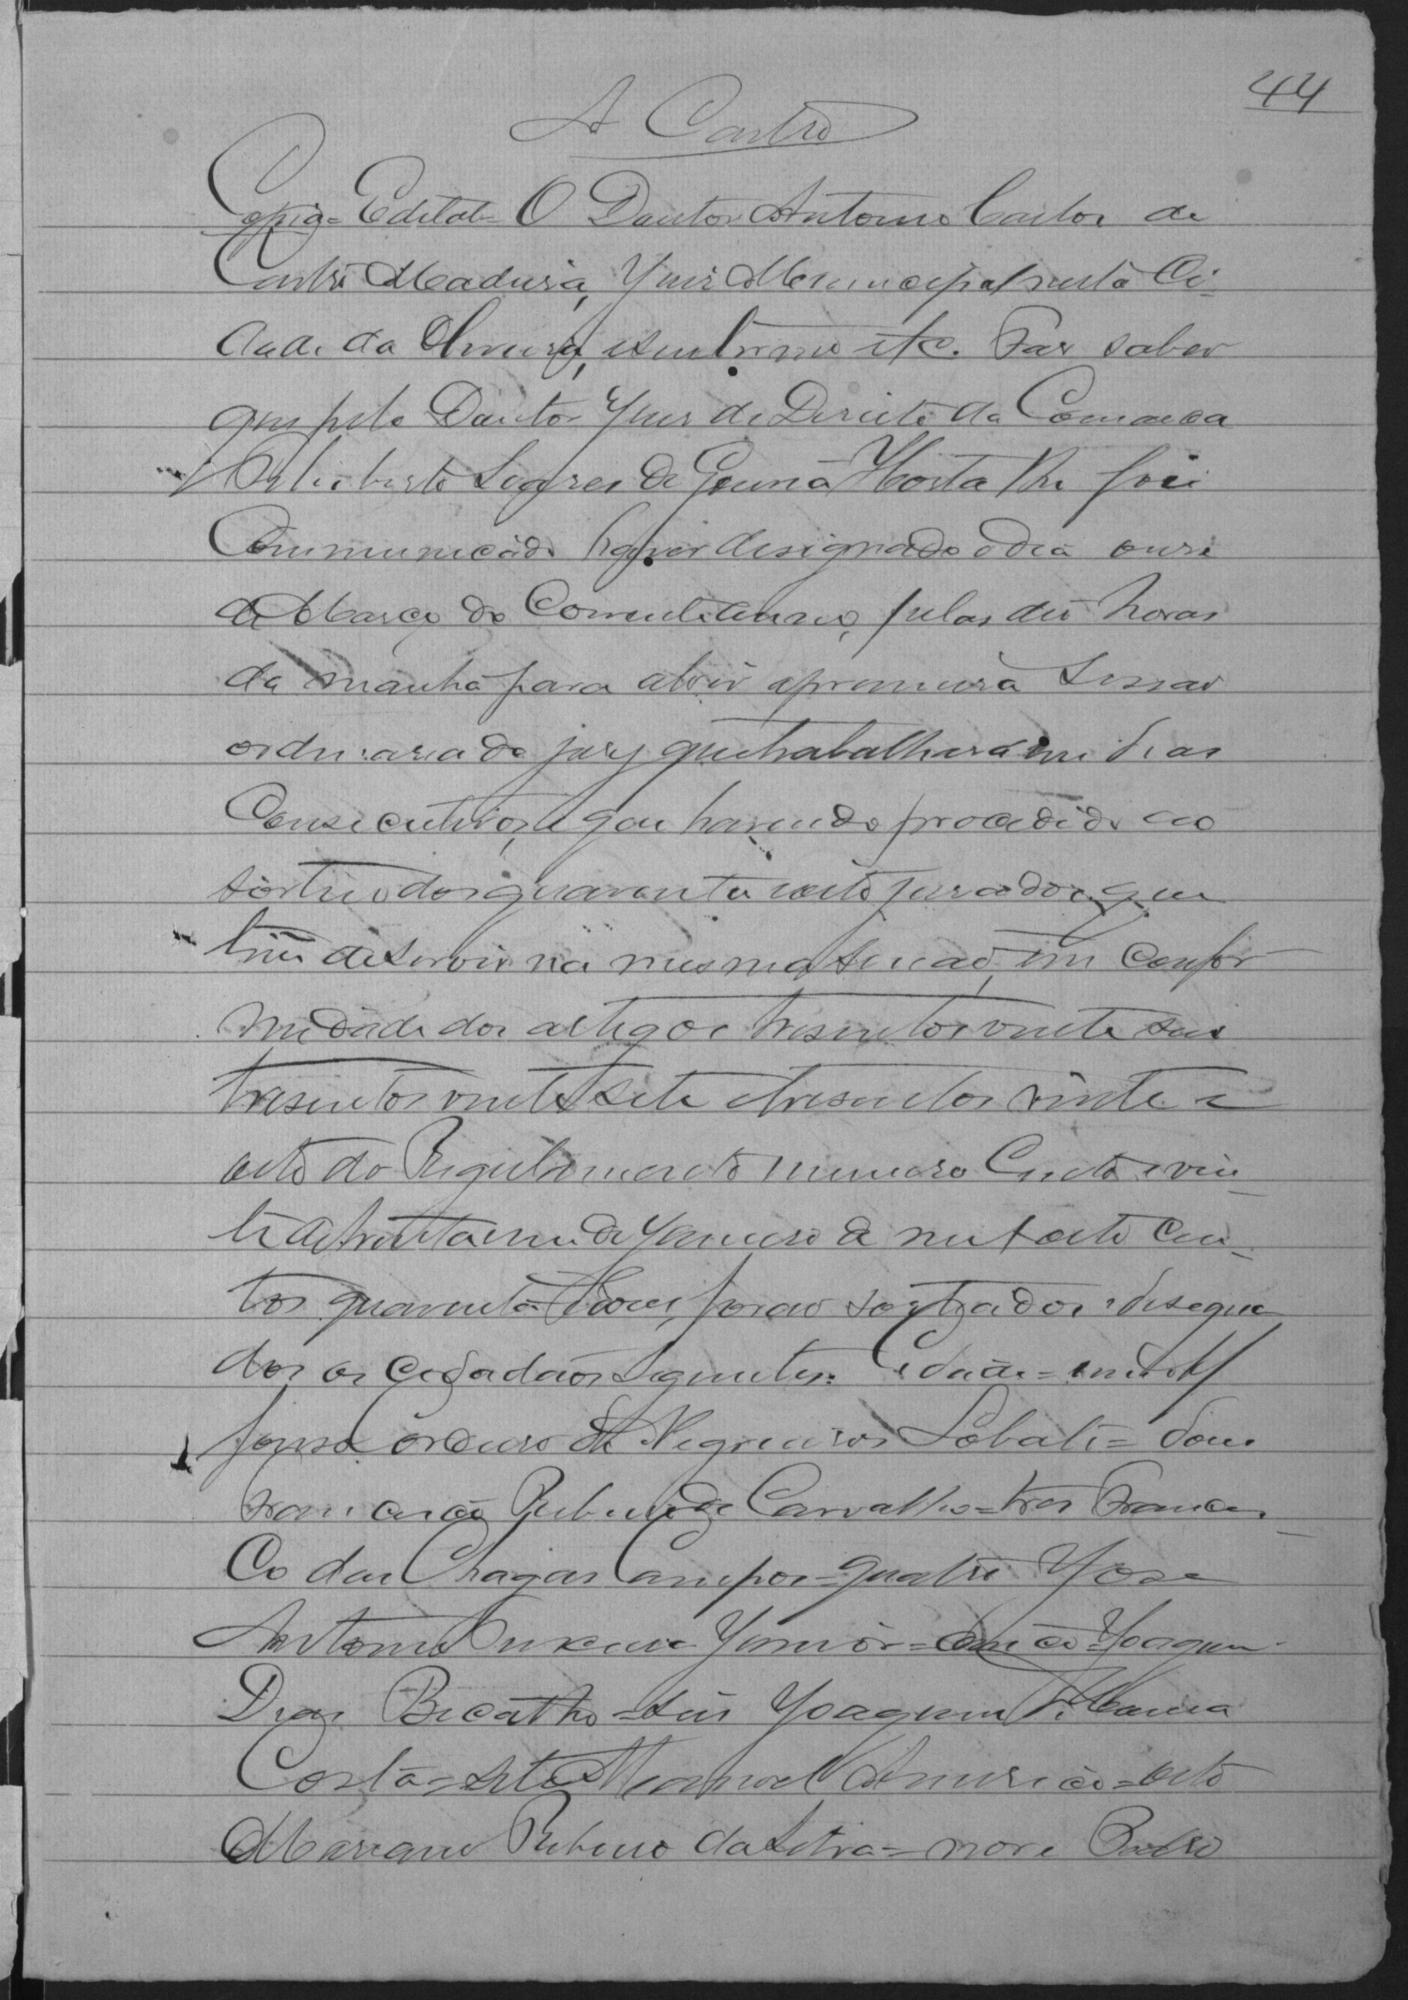 44
A Castro
Copia = Edital = O Doutor Antonio Carlos de
Castro Madeira, Juis Municipal nesta Ci-
dade da Oliveira, e seu termo etc. Faz saber
que pelo Doutor Juis de Direito da Comarca
de Horta me foi
Communicado haver designado o dia onze
de Março do Corrente anno, pelas dez horas
da manhã para abrir a primeira Sessão
ordinaria do jury que trabalhará em dias
Consecutivos, e que havendo procedido ao
sorteio dos quarenta e oito jurados que
tem de servir na mesma sessão, em confor-
midade dos artigos tresentos vinte seis
tresentos vinte sete e tresentos vinte e
oito do Regulamento numero Cento e vin-
te de trinta e um de Janeiro de mil oito cen-
tos quarenta e dous, forão sorteados e designa
dos os Cidadãos seguintes: Cidade = um Af
fonso Cordeiro de Negreiros Lobato = dous
Francisco Ribeiro de Carvalho = tres Francis-
Co das Chagas Campos = quatro José
Antonio Junior = Cinco = Joaquim
Dias Bicalho = Seis Joaquim
Costa = Sete Manoel Americo = oito
Mariano Ribeiro da Silva = nove Pedro